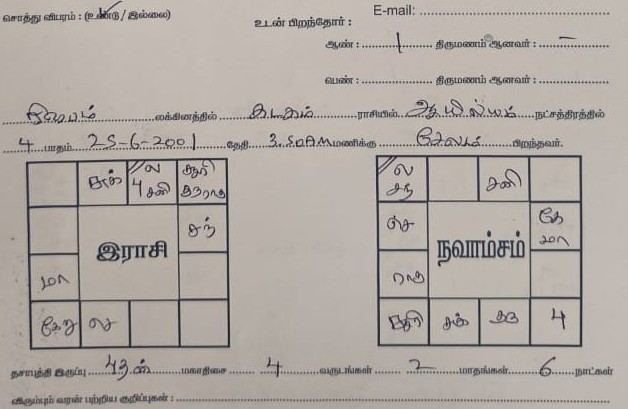 சொத்து விபரம் : (உண்டு / இல்லை)
E-mail:
உடன் பிறந்தோர் :
ஆண் : 1 திருமணம் ஆனவர் : –
பெண் : திருமணம் ஆனவர் :
லக்கினத்தில் கடகம் ராசியில் ஆயில்யம் நட்சத்திரத்தில்
4 பாதம் 25-6-2001 தேதி 3.50AM மணிக்கு சேலம் பிறந்தவர்.
சுக் ல 4 சனி சூரி குருராகு
ல சந் சனி
சந்
செ கே மா
இராசி
நவாம்சம்
மா
ராகு
கேது செ
சூரி சுக் குரு 4
தசாபுத்தி இருப்பு மகாதிசை 4 வருடங்கள் 2 மாதங்கள் 6 நாட்கள்
விரும்பும் வரன் பற்றிய குறிப்புகள் :